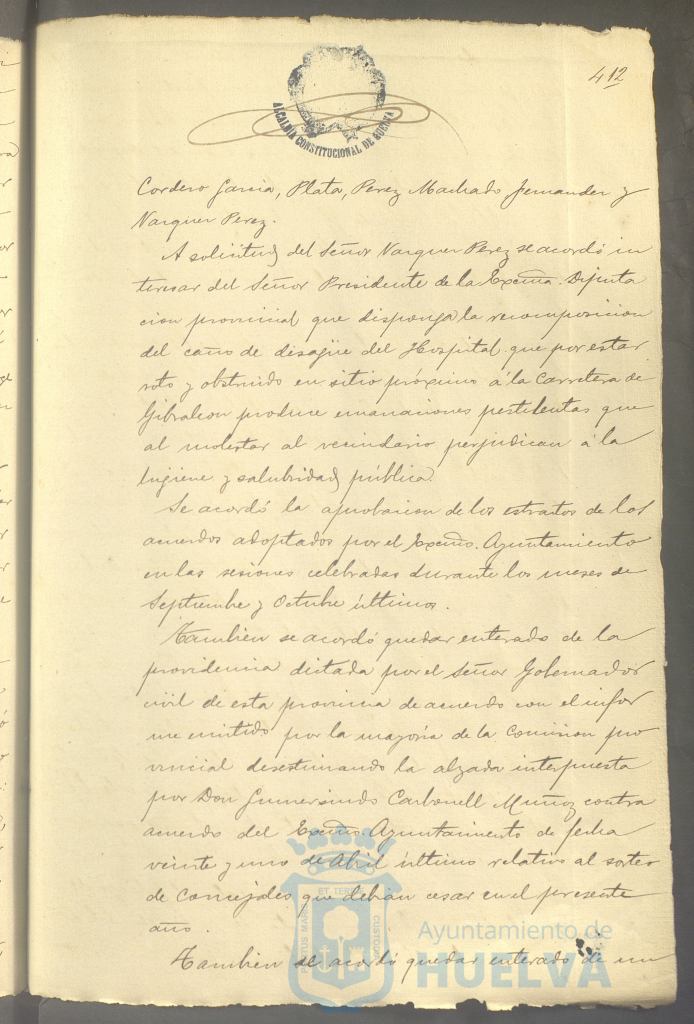 412
ALCALDIA CONSTITUCIONAL DE HUELVA
Cordero Garcia, Plata, Perez Machado Fernandez y
Vazquez Perez.
A solicitud del Señor Vazquez Perez se acordó in
teresar del Señor Presidente de la Excma. Diputa
cion provincial que disponga la recomposicion
del caño de desagüe del Hospital que por estar
roto y obstruido en sitio próximo á la Carretera de
Gibraleon produce emanaciones pestilentas que
al molestar al vecindario perjudican á la
higiene y salubridad pública.
Se acordó la aprobacion de los estractos de los
acuerdos adoptados por el Excmo. Ayuntamiento
en las sesiones celebradas durante los meses de
Septiembre y Octubre últimos.
Tambien se acordó quedar enterado de la
providencia dictada por el Señor Gobernador
civil de esta provincia de acuerdo con el infor
me emitido por la mayoria de la Comision pro
vincial desestimando la alzada interpuesta
por Don Gumersindo Carbonell Muñoz contra
acuerdo del Excmo. Ayuntamiento de fecha
veinte y uno de Abril último relativo al sorteo
de Concejales que debian cesar en el presente
año.
Tambien se acordó quedar enterado de un
PORTUS MARIS ET TERRAE CUSTODIA
Ayuntamiento de
HUELVA